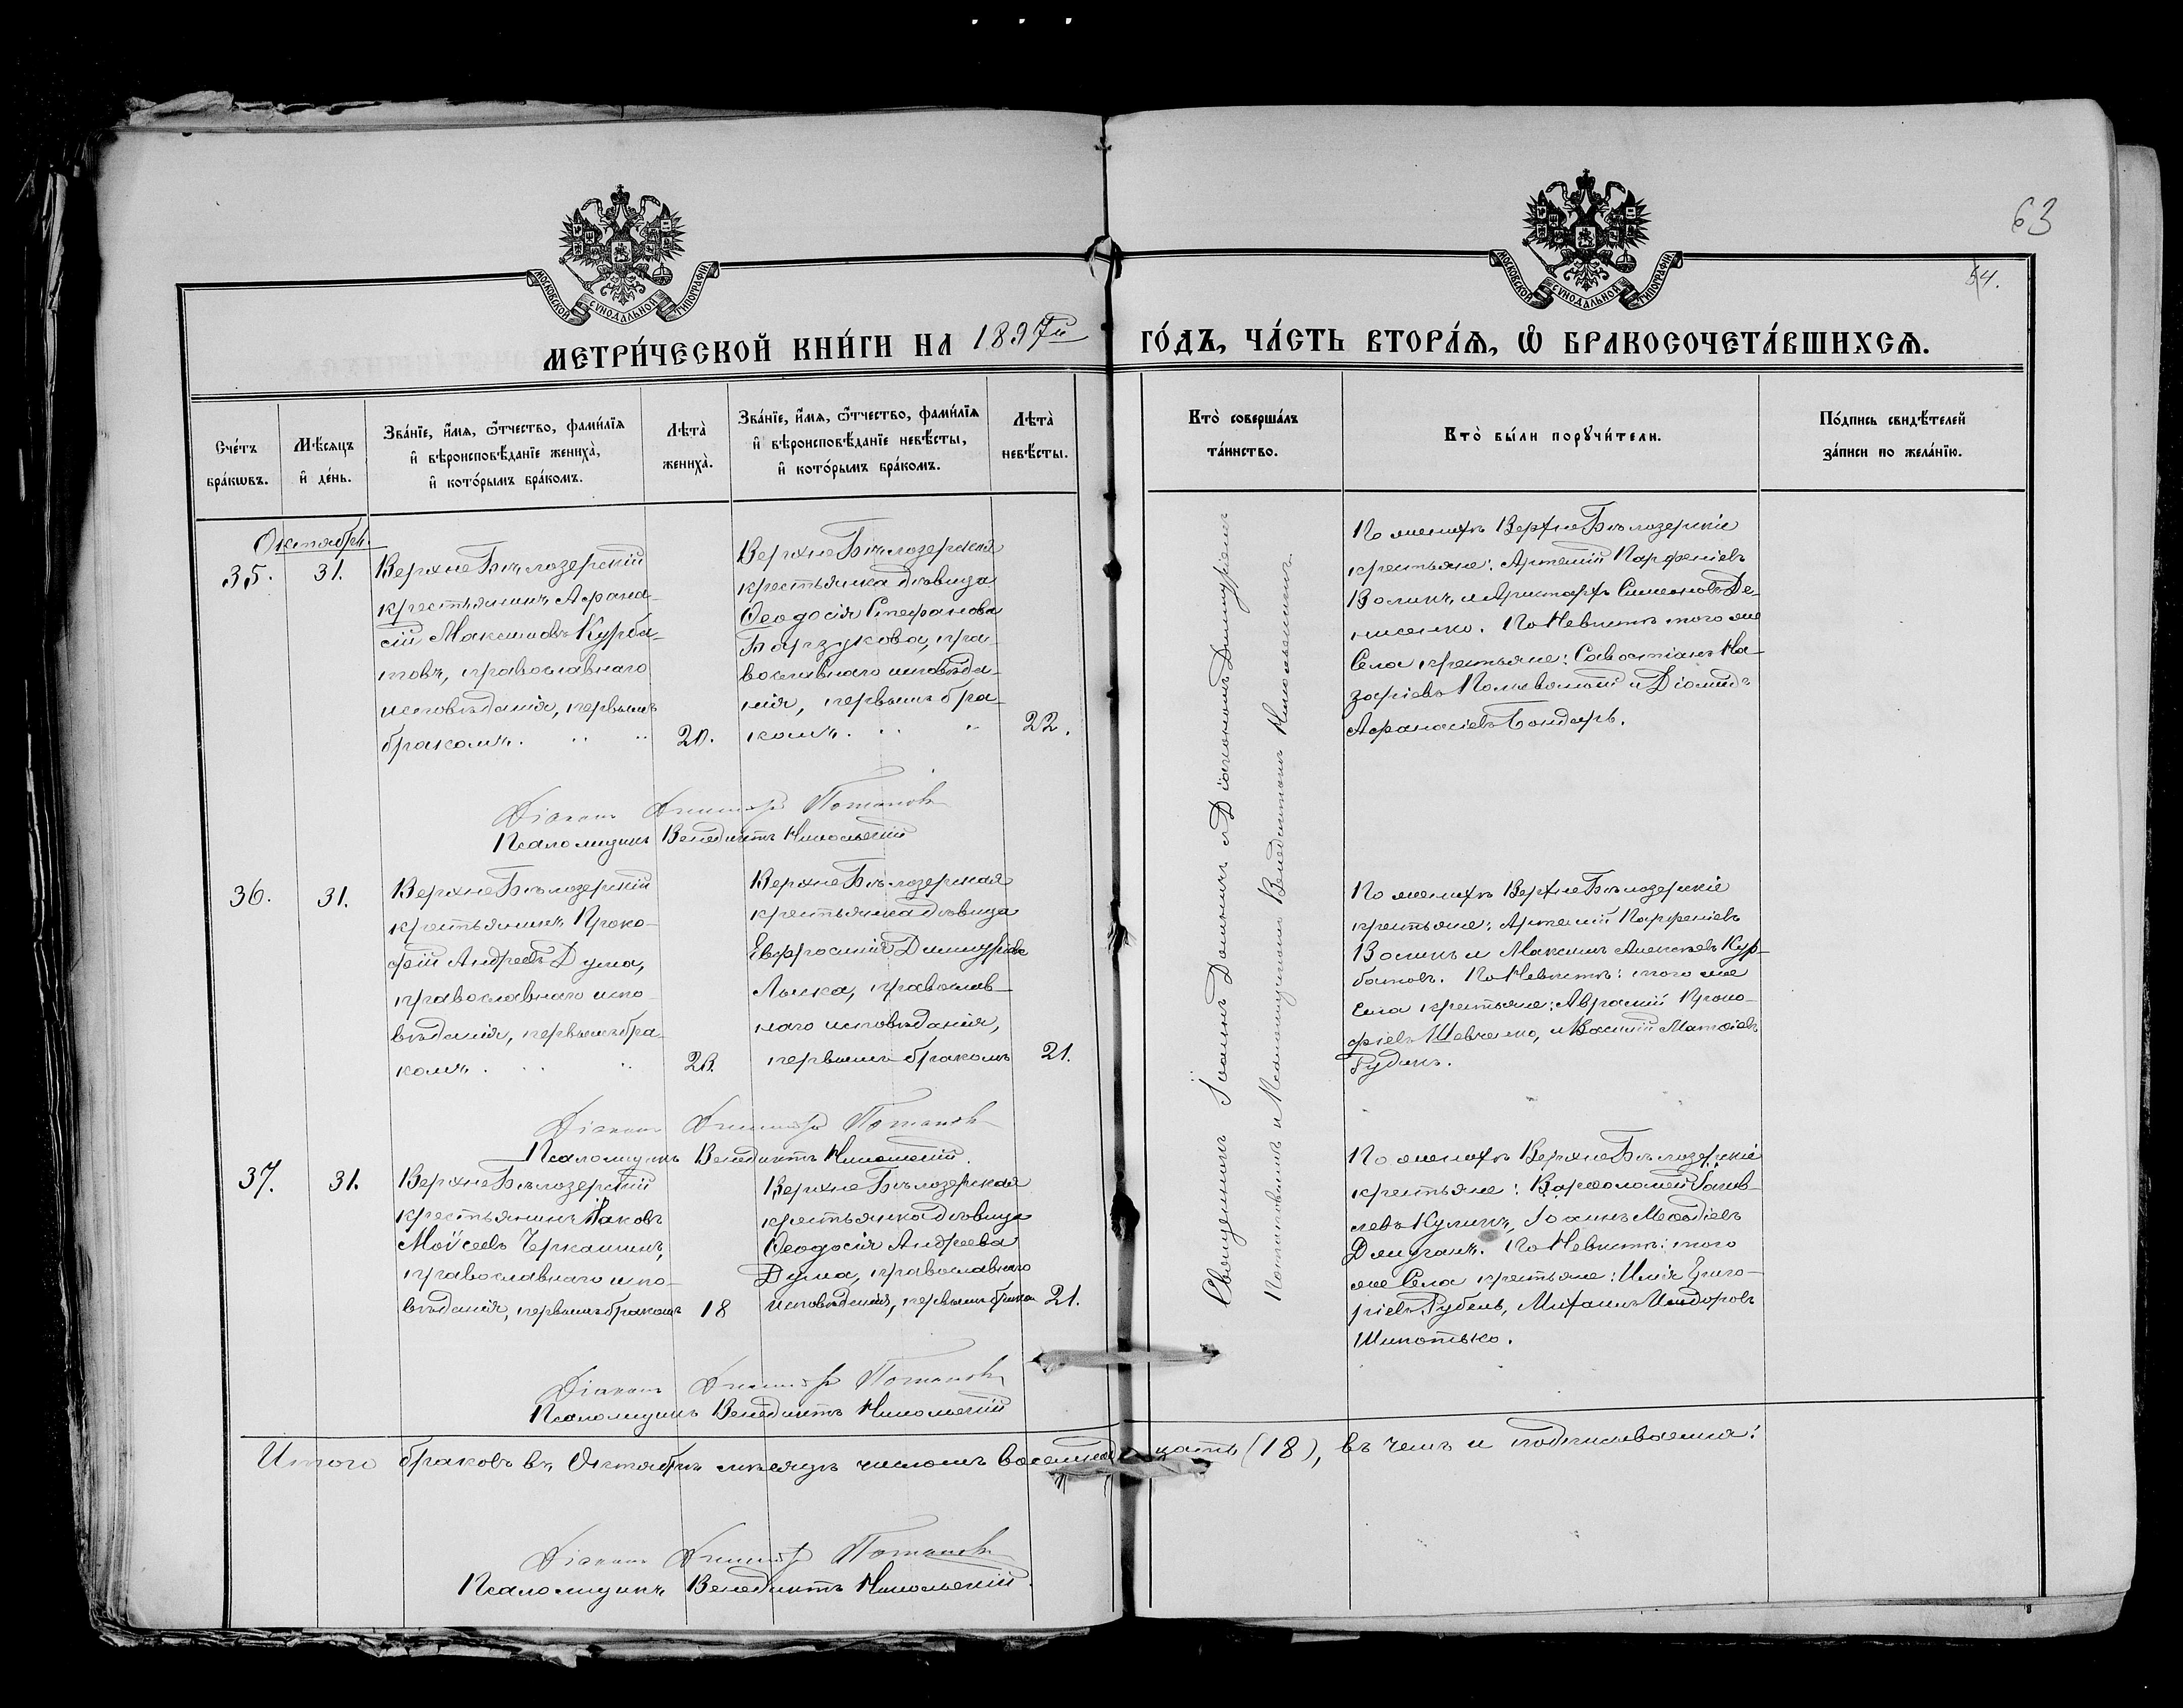 63
54.
МОСКОВСКОЙ СУНОДАЛЬНОЙ ТИПОГРАФІИ.
МОСКОВСКОЙ СУНОДАЛЬНОЙ ТИПОГРАФІИ.
МЕТРИ́ЧЕСКОЙ КНИ́ГИ НА 1897й ГО́ДЪ, ЧА́СТЬ ВТОРА́Ѧ, Ѡ҆ БРАКОСОЧЕТА́ВШИХСѦ.
Сче́тъ
бра́кωвъ.
Мѣ́сѧцъ
и҆ де́нь.
Зва́нїе, и҆́мѧ, ѻ҆́тчество, фамѝлїѧ
и҆ вѣроисповѣ́данїе женихà,
и҆ кото́рымъ бра́комъ.
Лѣтà
женихà.
Зва́нїе, и҆́мѧ, ѻ҆́тчество, фамѝлїѧ
и҆ вѣроисповѣ́данїе невѣ́сты,
и҆ кото́рымъ бра́комъ.
Лѣтà
невѣ́сты.
Ктò соверша́лъ
та́инство.
Ктò бы́ли порꙋчи́тели.
По́дпись свидѣ́телей
за́писи по жела́нїю.
Октябрь.
35.
31.
ВерхнеБѣлозерскій
крестьянинъ Афана-
сій Максимовъ Курба-
товъ, православнаго
исповѣданія, первымъ
бракомъ.
20.
ВерхнеБѣлозерская
крестьянка дѣвица
Ѳеодосія Стефанова
Барзукова, пра-
вославнаго исповѣда-
нія, первымъ бра-
комъ.
22.
Священникъ Іоаннъ Даничъ съ Діакономъ Димитріемъ
Потаповымъ и Псаломщикомъ Венедиктомъ Никольскимъ.
По женихѣ ВерхнеБѣлозерскіе
крестьяне: Артемій Парфеніевъ
Воликъ, и Аристархъ Симеоновъ Де-
нисенко. По Невѣстѣ того же
Села крестьяне: Савостіанъ На-
заріевъ и Діомидъ
Афанасіевъ Бондарь.
Діаконъ Димитрій Потаповъ
Псаломщикъ Венедиктъ Никольскій
36.
31.
ВерхнеБѣлозерскій
крестьянинъ Проко-
фій Андреевъ Дума,
православнаго испо-
вѣданія, первымъ бра-
комъ.
ВерхнеБѣлозерская
крестьянка дѣвица
Евфросинія Димитріева
Лыска, православ-
наго исповѣданія,
первымъ бракомъ
21.
По женихѣ ВерхнеБѣлозерскіе
крестьяне: Артемій Парфеніевъ
Воликъ и Максимъ Алексѣевъ Кур-
батовъ. По Невѣстѣ: того же
Села крестьяне: Аврамій Проко-
фіевъ Шевченко, и Василій Матѳіевъ
Рудикъ.
Діаконъ Димитрій Потаповъ
Псаломщикъ Венедиктъ Никольскій.
37.
31.
ВерхнеБѣлозерскій
крестьянинъ Іаковъ
Моѵсеевъ Черкашинъ,
православнаго испо-
вѣданія, первымъ бракомъ
18
ВерхнеБѣлозерская
крестьянка дѣвица
Ѳеодосія Андреева
Дума, православнаго
исповѣданія, первымъ бракомъ
21.
По женихѣ ВерхнеБѣлозерскіе
крестьяне: Варѳоломей Іаков-
левъ Куликъ, Іоаннъ Меѳодіевъ
По Невѣстѣ: того
же Села крестьяне: Илія Григо-
ріевъ Рубель, Михаилъ Исидоровъ
Шипотько.
Діаконъ Димитрій Потаповъ
Псаломщикъ Венедиктъ Никольскій
Итого браковъ въ Октябрѣ мѣсяцѣ числомъ восемнадцать (18), въ чемъ и подписываемся:
Діаконъ Димитрій Потаповъ
Псаломщикъ Венедиктъ Никольскій.